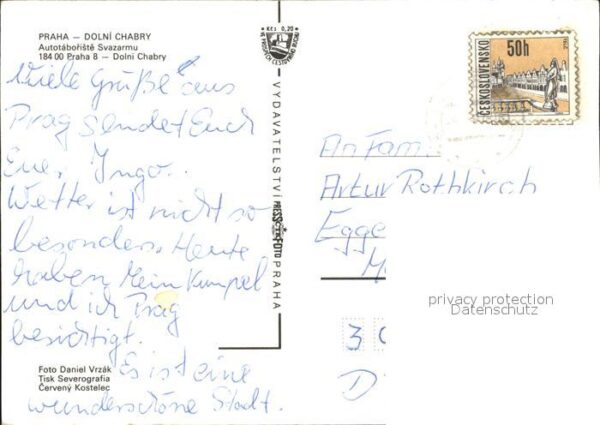 PRAHA — DOLNÍ CHABRY
Autotábořiště Svazarmu
184 00 Praha 8 — Dolní Chabry
Viele Grüße aus
Prag sendet Euch
Eue, Ingo.
Wetter ist nicht so
besonders. Heute
haben, Mein Kumpel
und ich Prag
besichtigt.
Es ist eine
wunderschöne Stadt.
Foto Daniel Vrzák
Tisk Severografia
Červený Kostelec
Kčs 0,20
VYDAVATELSTVÍ PRESSFOTO PRAHA
ČESKOSLOVENSKO
50h
An Fam.
Artur Rothkirch
Egge
3
D
privacy protection
Datenschutz